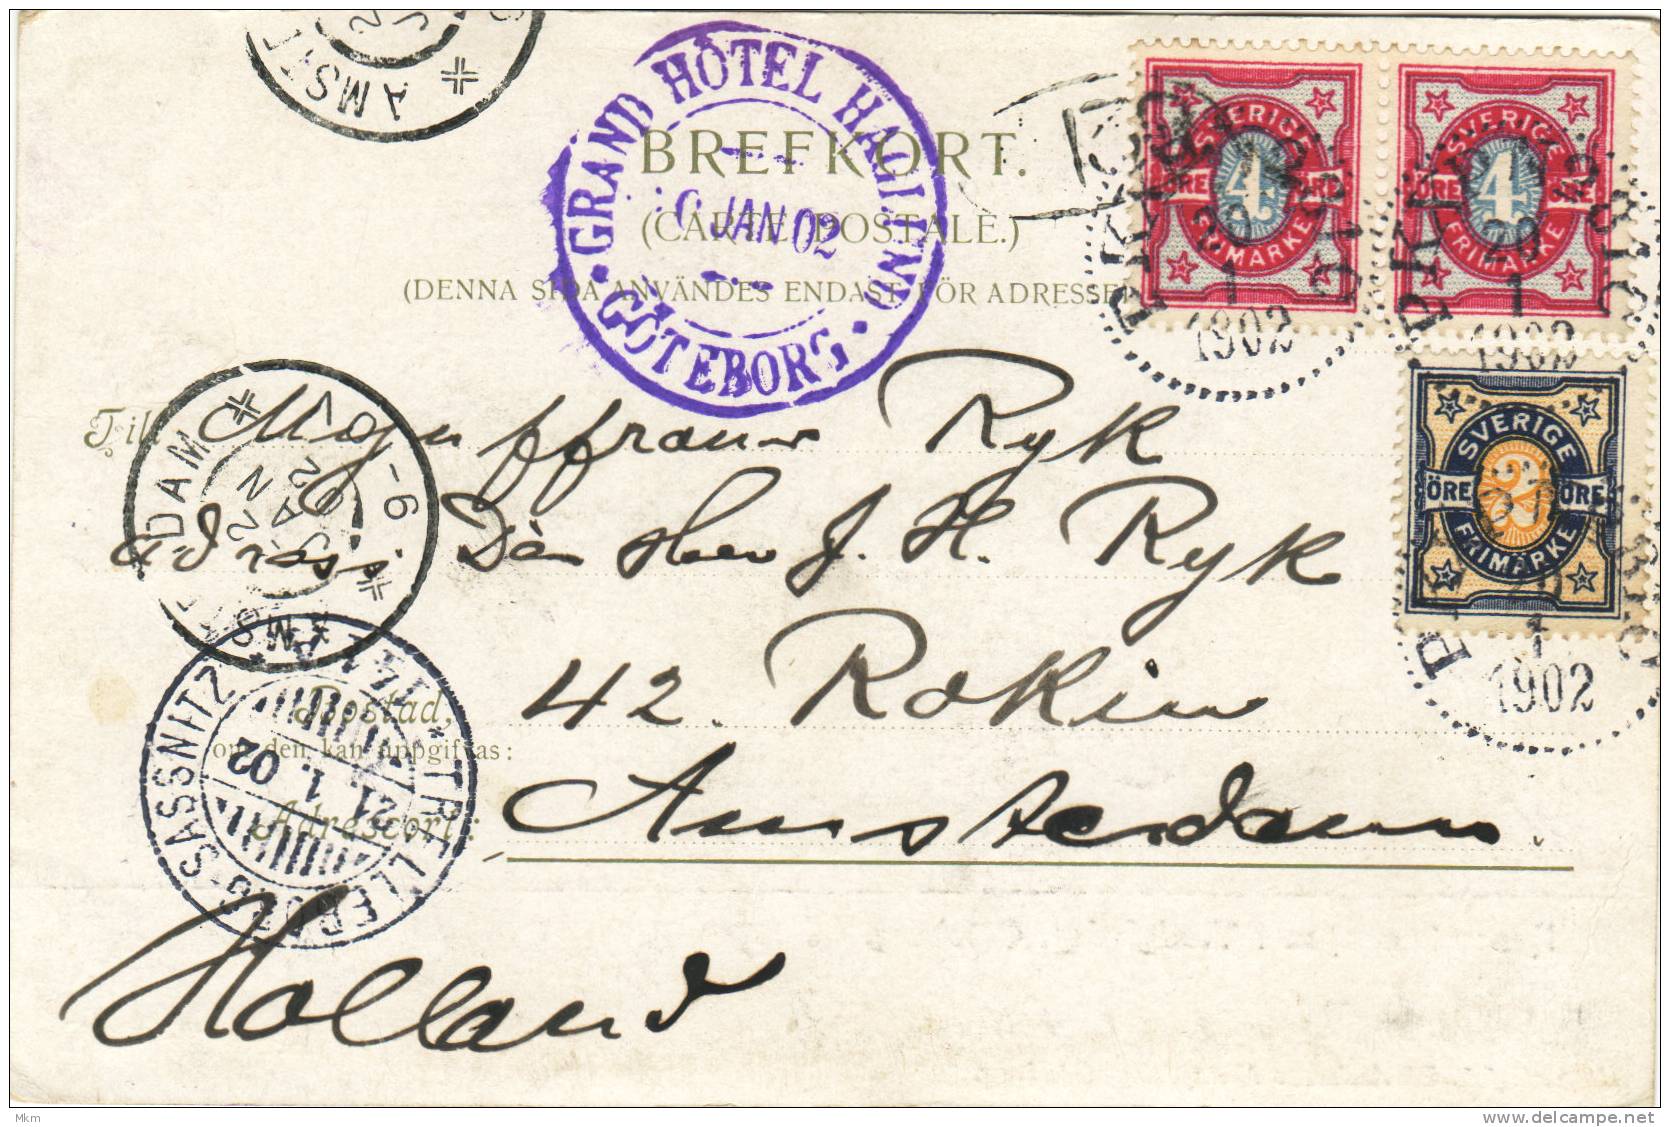 BREFKORT.
(CARTE POSTALE.)
(DENNA SIDA ANVÄNDES ENDAST FÖR ADRESSE
GRAND HÔTEL HAGLUND
JAN 02
GÖTEBORG
AMST
SVERIGE
4
ÖRE ÖRE
FRIMÄRKE
SVERIGE
4
ÖRE ÖRE
FRIMÄRKE
20
1
1902
20
1
1902
SVERIGE
ÖRE 2 ÖRE
FRIMÄRKE
1
1902
PKXP
Till Ryk
adress J. H. Ryk
42. Rokin
Amsterdam.
Holland
Postad,
om den kan uppgiftas:
Adressort:
AMST DAM
6-
JAN
02
TRELLEBORG-SASSNITZ
21. 1. 02
Mkm
www.delcampe.net